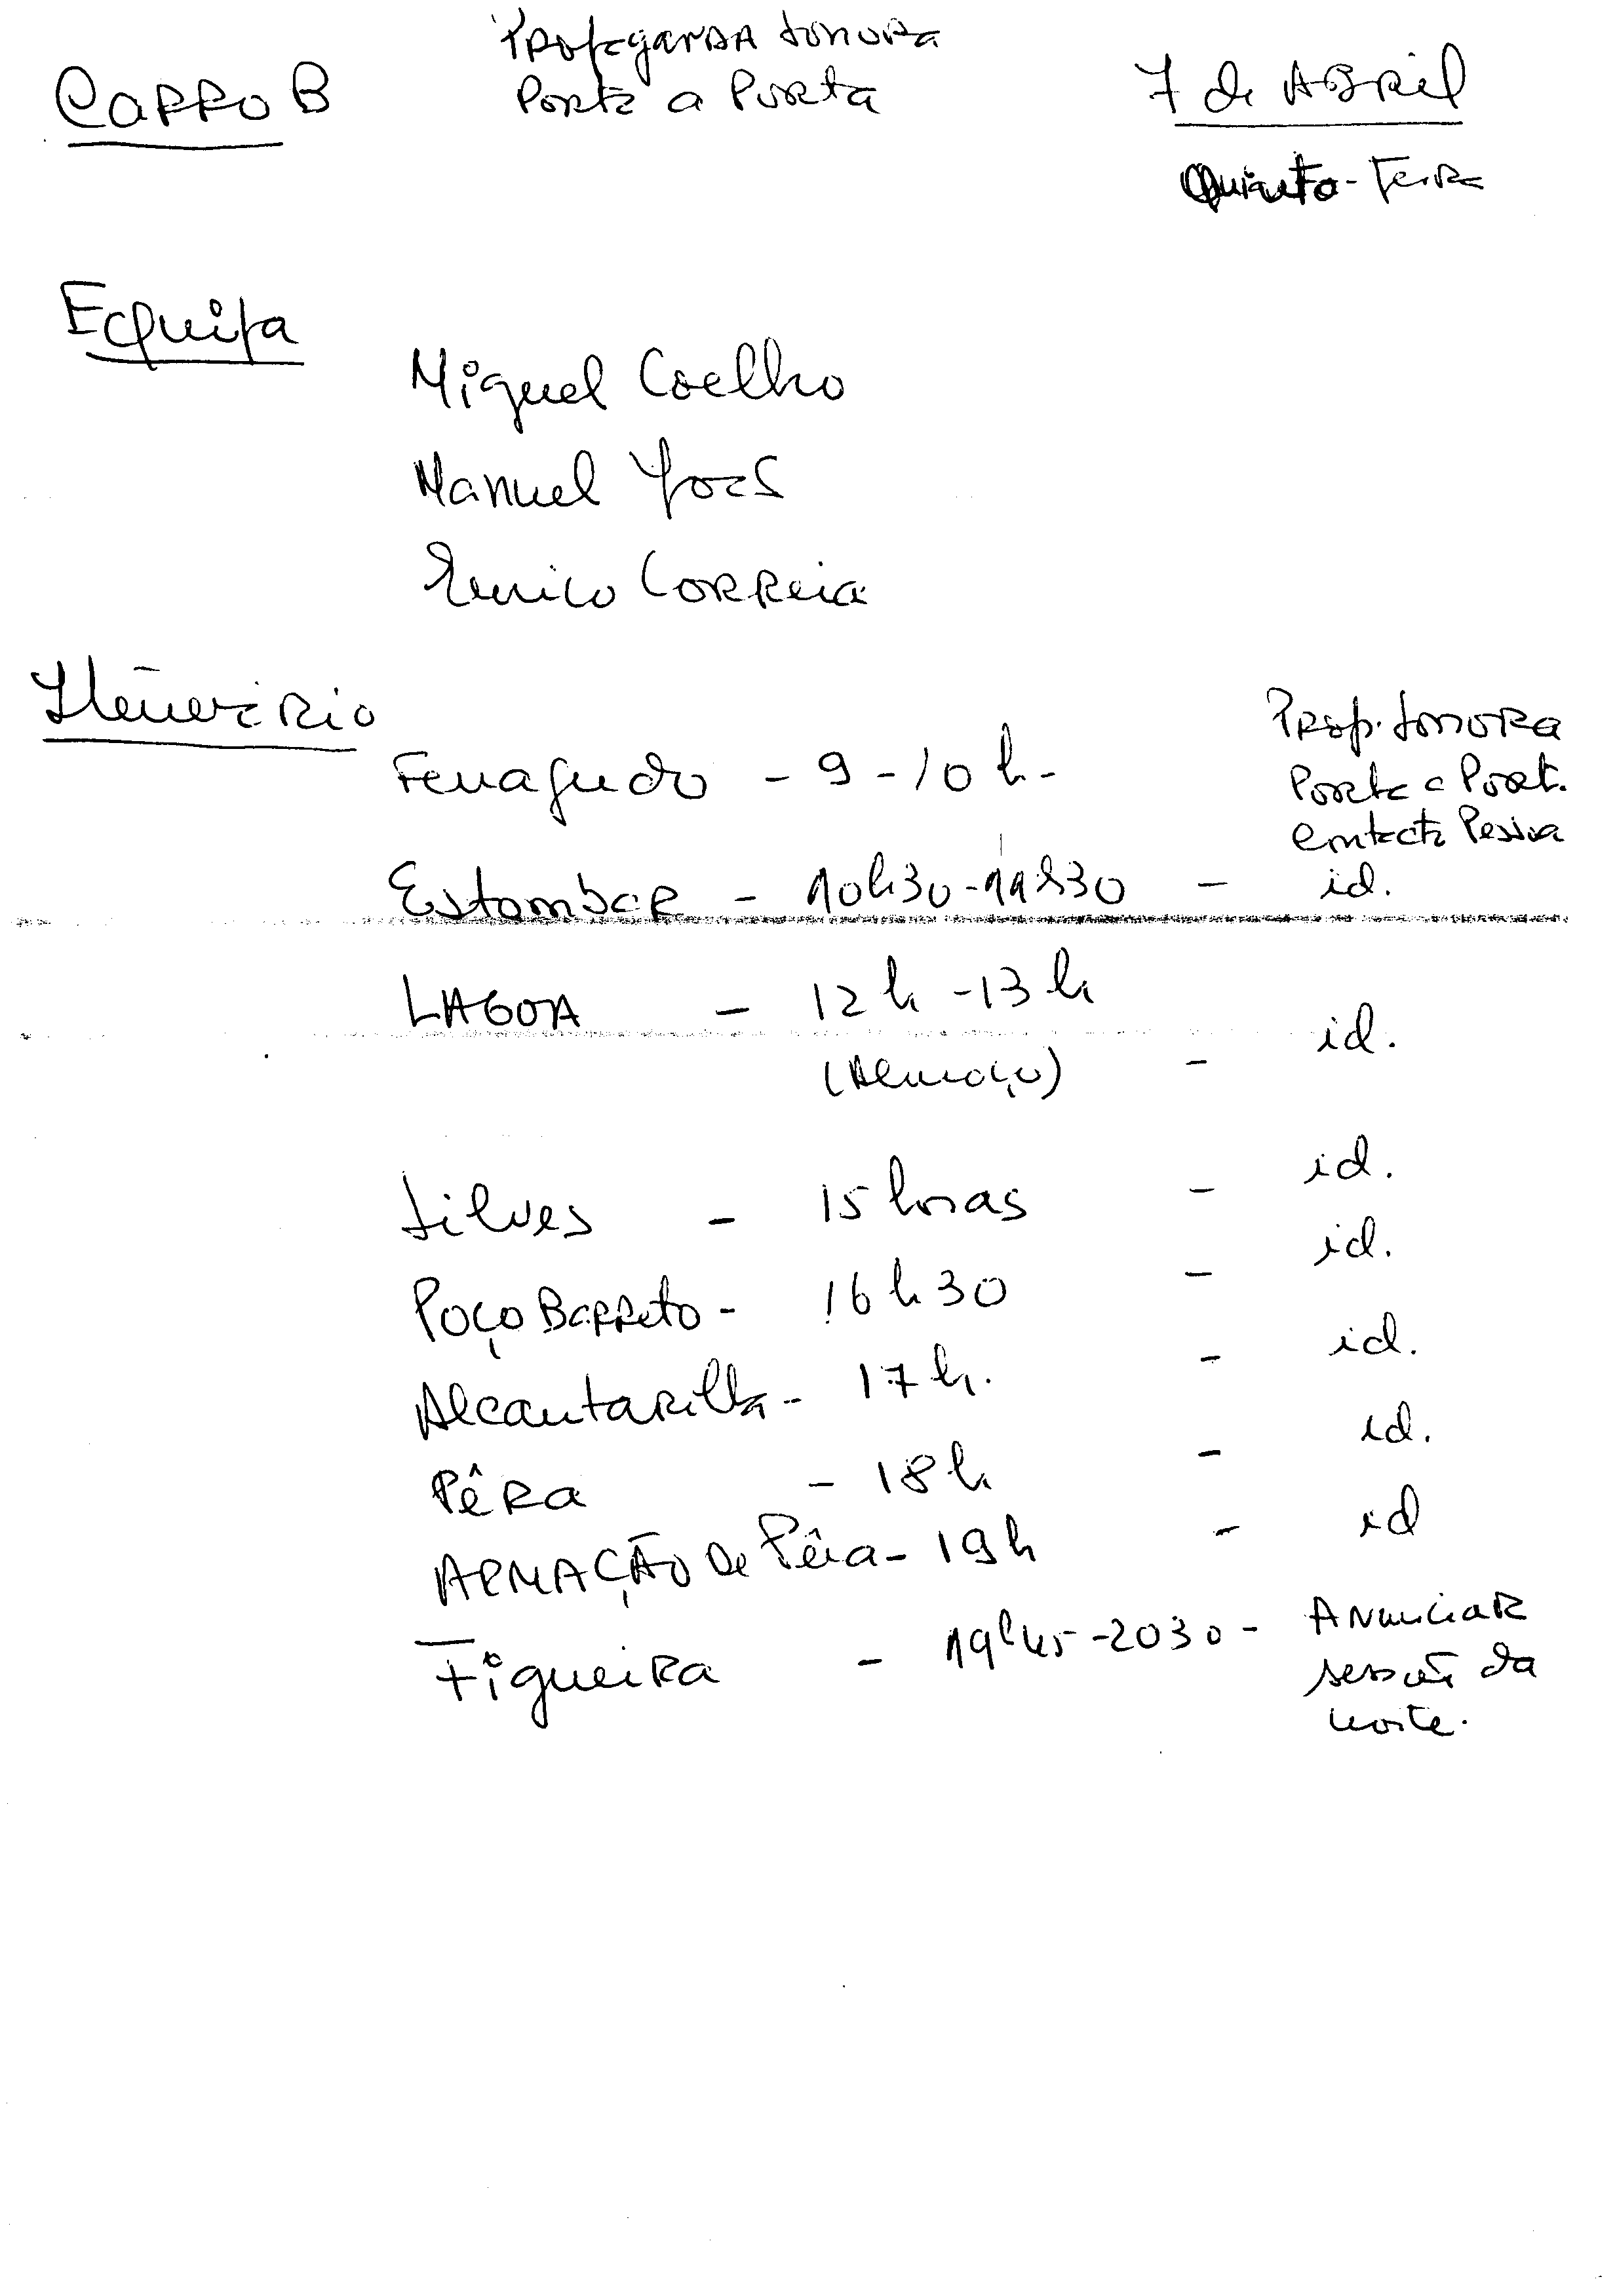 Carro B
Propaganda Sonora
Porta a Porta
7 de Abril
Quinta-Feira
Equipa
Miguel Coelho
Manuel José
Correia
Itenerário
Ferragudo - 9-10h-
Prop. Sonora
Porta a Port.
Contacto Pessoa
Estombar - 10h30-11h30 - id.
LAGOA - 12h-13h
(Almoço) - id.
Silves - 15 horas - id.
Poço Barreto - 16h30 - id.
Alcantarilha - 17h. - id.
Pêra - 18h - id.
ARMAÇÃO de Pêra - 19h - id
Figueira - 19h45-2030 - Anunciar
sessão da
noite.